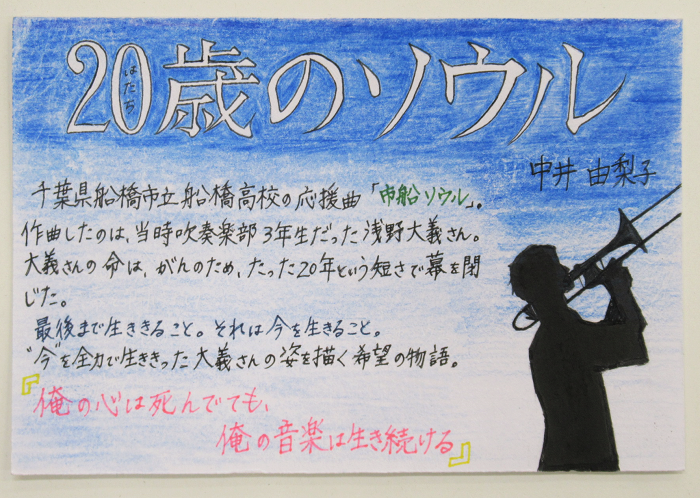 20歳のソウル
はたち
中井 由梨子
千葉県船橋市立船橋高校の応援曲「市船ソウル」。
作曲したのは、当時吹奏楽部3年生だった浅野大義さん。
大義さんの命は、がんのため、たった20年という短さで幕を閉
じた。
最後まで生ききること。それは今を生きること。
"今"を全力で生ききった大義さんの姿を描く希望の物語。
『俺の心は死んでても、
俺の音楽は生き続ける』